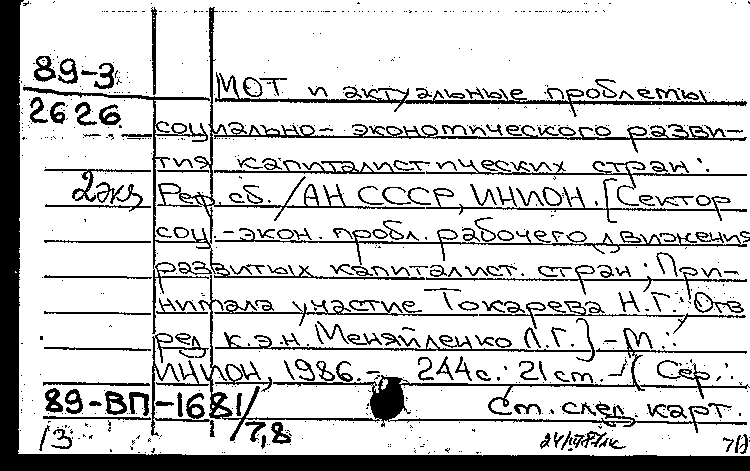 89-3
2626
2 экз
МОТ и актуальные проблемы
социально-экономического разви-
тия капиталистических стран:
Реф. сб. /АН СССР, ИНИОН. [Сектор
соц-экон. пробл. рабочего движения
развитых капиталист. стран; При-
нимала участие Токарева Н.Г.; Отв
ред к.э.н. Меняйленко Л.Г.] - М.:
ИНИОН, 1986. - 244 с.: 21 cm. - (Сер.:
89-ВП-1681/
7,8
Cm. след. карт.
13